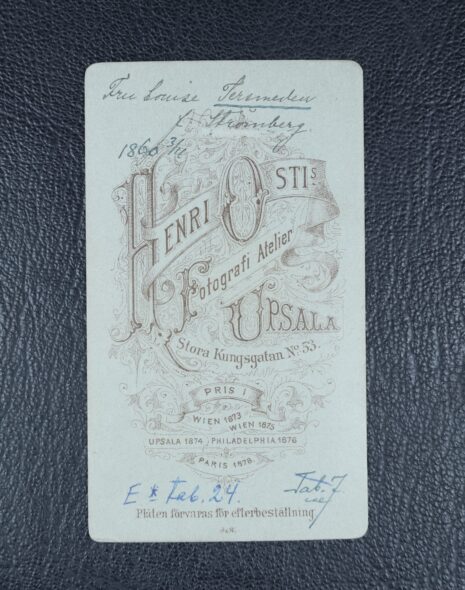 Fru Louise Tersmeden
f. Strömberg
1860 3/11
HENRI OSTIs
Fotografi Atelier
UPSALA
Stora Kungsgatan No. 33.
PRIS I
WIEN 1873
WIEN 1875
UPSALA 1874 PHILADELPHIA 1876
PARIS 1878.
E * Tab. 24.
Tab. 7
Plåten förvaras för efterbeställning